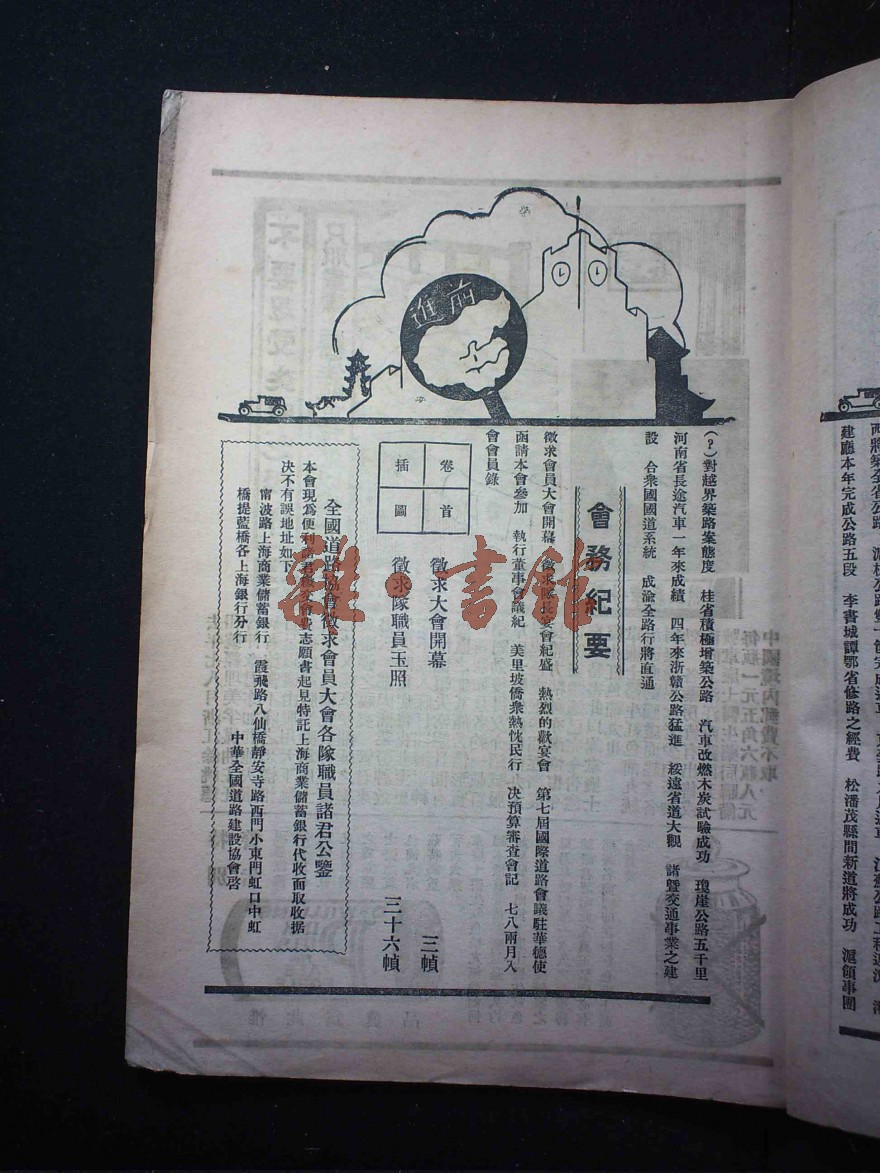 前進
(？)對越界築路案態度　桂省積極增築公路　汽車改燃木炭試驗成功　瓊崖公路五千里
河南省長途汽車一年來成績　四年來浙贛公路猛進　綏遠省道大觀　諸暨交通事業之建
設　合衆國國道系統　成渝全路行將直通
會務紀要
徵求會員大會開幕　徵求隊長宴會紀盛　熱烈的歡宴會　第七屆國際道路會議駐華德使
函請本會參加　執行董事會議紀　美里坡僑衆熱忱民行　決預算審查會記　七八兩月入
會會員錄
卷首
插圖
徵求大會開幕　三幀
徵求隊職員玉照　三十六幀
全國道路協會徵求會員大會各隊職員諸君公鑒
本會現爲便利諸君繳交會費志願書起見特託上海商業儲蓄銀行代收面取收据
決不有誤地址如下
甯波路上海商業儲蓄銀行　霞飛路八仙橋靜安寺路西門小東門虹口中虹
橋提藍橋各上海銀行分行
中華全國道路建設協會啓
建廳本年完成公路五段　李書城譚鄂省修路之經費　松潘茂縣間新道將成功　滬領事團
雜·書館